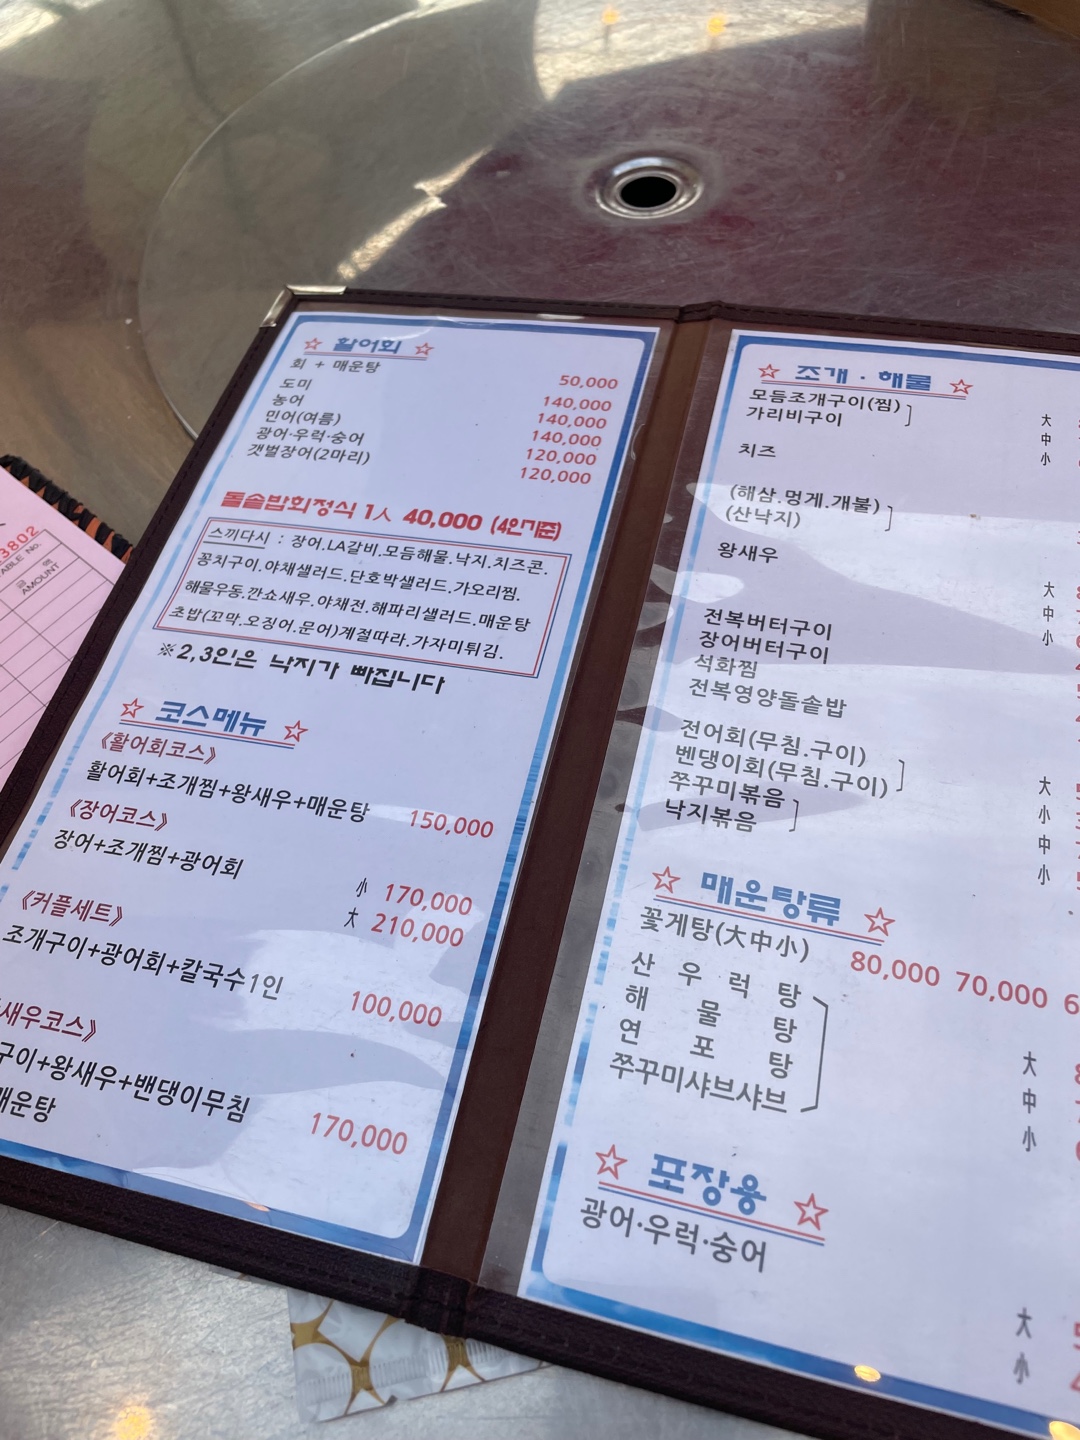 3802
TABLE No.
금 액
AMOUNT
☆ 활어회 ☆
회 + 매운탕 50,000
도미 140,000
농어 140,000
민어(여름) 140,000
광어·우럭·숭어 120,000
갯벌장어(2마리) 120,000
돌솥밥회정식 1人 40,000 (4인기준)
스끼다시 : 장어.LA갈비.모듬해물.낙지.치즈콘.
꽁치구이.야채샐러드.단호박샐러드.가오리찜.
해물우동.깐쇼새우.야채전.해파리샐러드.매운탕
초밥(꼬막.오징어.문어)계절따라.가자미튀김.
※2,3인은 낙지가 빠집니다
☆ 코스메뉴 ☆
《활어회코스》
활어회+조개찜+왕새우+매운탕 150,000
《장어코스》
장어+조개찜+광어회
小 170,000
大 210,000
《커플세트》
조개구이+광어회+칼국수1인
100,000
새우코스》
구이+왕새우+밴댕이무침
매운탕
170,000
☆ 조개 · 해물 ☆
모듬조개구이(찜)
가리비구이
大
中
小
치즈
(해삼.멍게.개불)
(산낙지)
왕새우
大
中
小
전복버터구이
장어버터구이
석화찜
전복영양돌솥밥
전어회(무침.구이)
벤댕이회(무침.구이)
쭈꾸미볶음
낙지볶음
大
小
中
小
☆ 매운탕류 ☆
꽃게탕(大中小) 80,000 70,000 6
산 우 럭 탕
해 물 탕
연 포 탕
쭈꾸미샤브샤브
大
中
小
☆ 포장용 ☆
광어·우럭·숭어
大
小